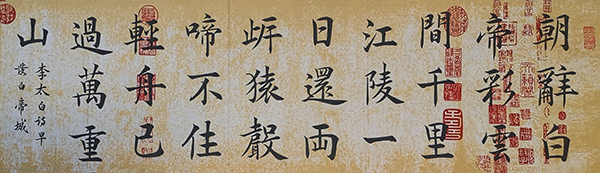 朝辭白
帝彩雲
間千里
江陵一
日還両
岸猿聲
啼不住
輕舟已
過萬重
山
李太白詩早
發白帝城